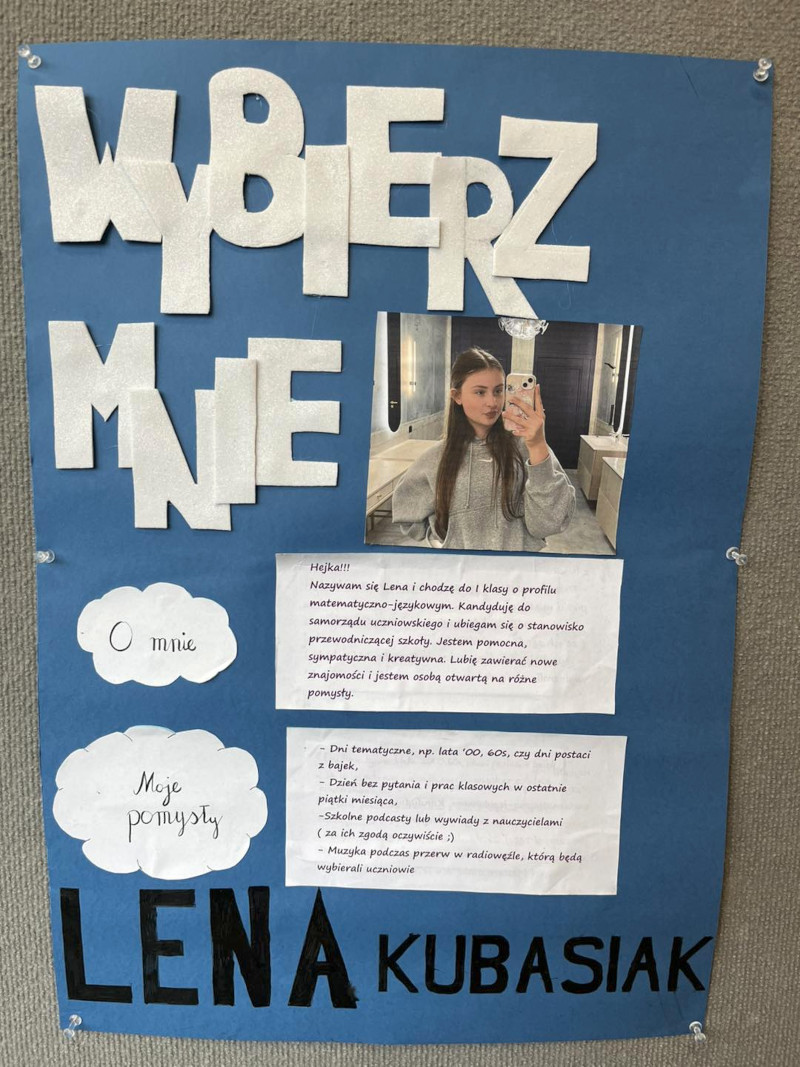 WYBIERZ
MNIE
O mnie
Hejka!!!
Nazywam się Lena i chodzę do I klasy o profilu
matematyczno-językowym. Kandyduję do
samorządu uczniowskiego i ubiegam się o stanowisko
przewodniczącej szkoły. Jestem pomocna,
sympatyczna i kreatywna. Lubię zawierać nowe
znajomości i jestem osobą otwartą na różne
pomysły.
Moje
pomysły
- Dni tematyczne, np. lata '00, 60s, czy dni postaci
z bajek,
- Dzień bez pytania i prac klasowych w ostatnie
piątki miesiąca,
-Szkolne podcasty lub wywiady z nauczycielami
( za ich zgodą oczywiście ;)
- Muzyka podczas przerw w radiowęźle, którą będą
wybierali uczniowie
LENA KUBASIAK